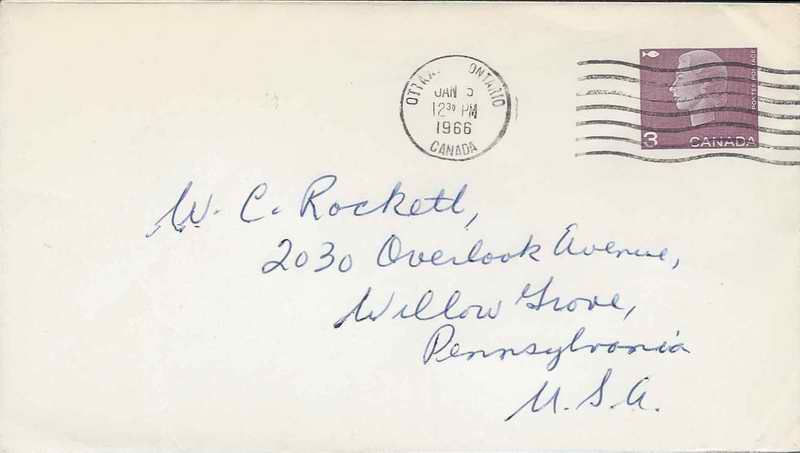 OTTAWA ONTARIO
JAN 5
12³⁰ PM
1966
CANADA
POSTES POSTAGE
3 CANADA
W. C. Rockett,
2030 Overlook Avenue,
Willow Grove,
Pennsylvania
U.S.A.